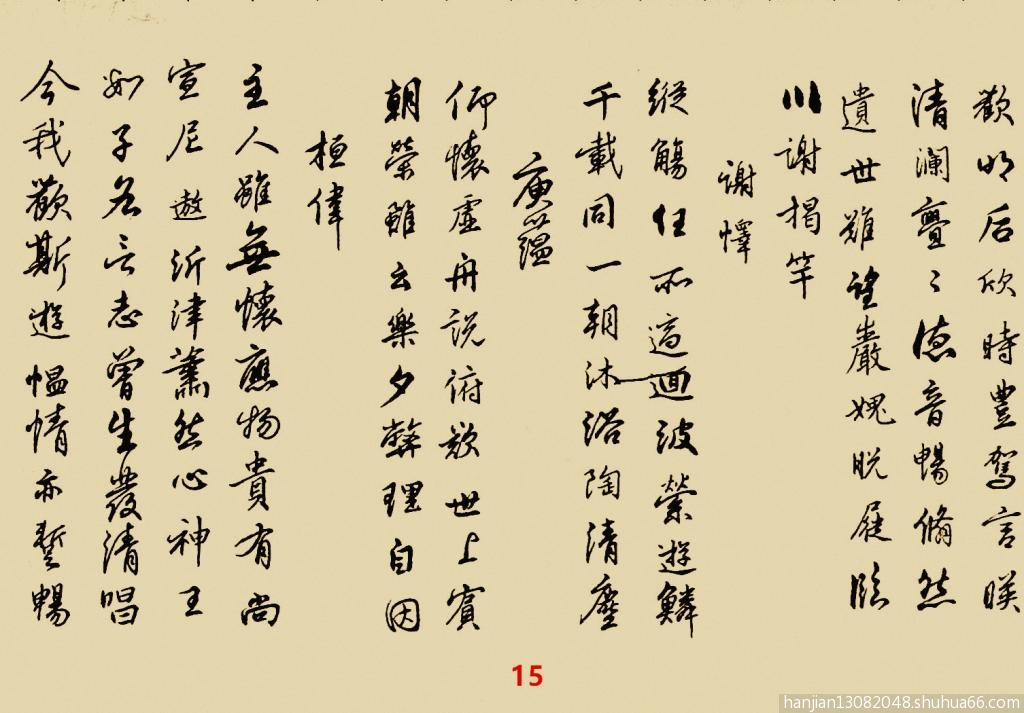 歡明后欣時豐駕言暎
清瀾亹〻德音暢翛然
遺世難望巖媿脫屣臨
川謝揭竿
謝懌
縱觴任所適迴波縈遊鱗
千載同一朝沐浴陶清塵
庾蘊
仰懷虛舟說俯歎世上賓
朝榮雖云樂夕弊理自因
桓偉
主人雖無懷應物貴有尚
宣尼遨沂津蕭然心神王
數子各言志曾生發清唱
今我歡斯遊慍情亦蹔暢
15
hanjian13082048.shuhua66.com